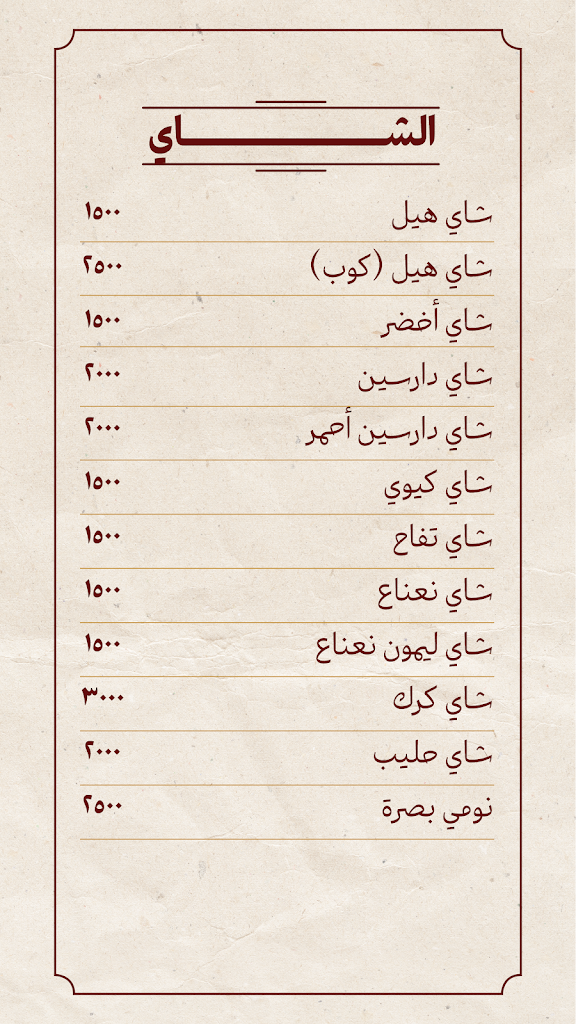 الشاي
شاي هيل ١٥٠٠
شاي هيل (كوب) ٢٥٠٠
شاي أخضر ١٥٠٠
شاي دارسين ٢٠٠٠
شاي دارسين أحمر ٢٠٠٠
شاي كيوي ١٥٠٠
شاي تفاح ١٥٠٠
شاي نعناع ١٥٠٠
شاي ليمون نعناع ١٥٠٠
شاي كرك ٣٠٠٠
شاي حليب ٢٠٠٠
نومي بصرة ٢٥٠٠